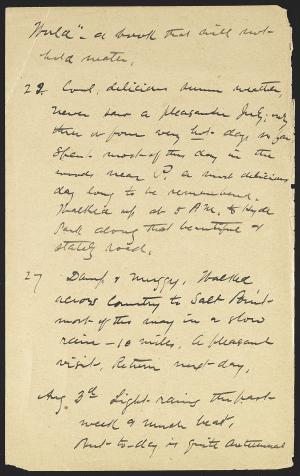 World" - a book that will not
hold water.
22. Cool, delicious summer weather,
never saw a pleasanter July; only
three or four very hot days so far
Spent most of this day in the
woods near V.P. a most delicious
day long to be remembered.
Walked up at 5 A.M. to Hyde
Park along that beautiful &
stately road.
27 Damp & muggy, Walked
across country to Salt Point
most of the way in a slow
rain - 10 miles. A pleasant
visit. Return next day.
Aug 3rd Light rains the past
week & much heat,
But to-day is quite autumnal